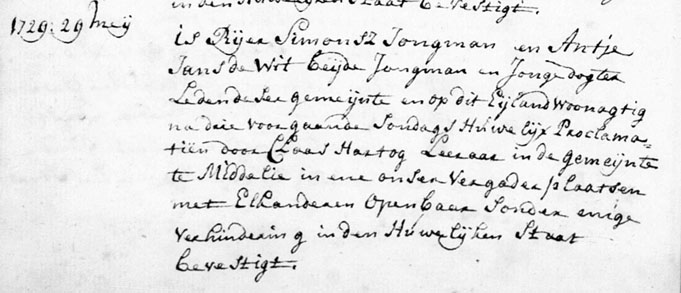 in den Huwelijken Staat bevestigt.
1729: 29 Meij
is Rijer Simonsz Jongman en Antje
Jans de Wit beijde Jongman en Jongedogter
Leden deser gemeijnte en op dit Eijland Woonagtig
na drie voorgaande Sondags Huwelijx Proclama-
tiën door Claas Hartog Leeraar in de gemeijnte
te Middelie in ene onser Vergaderplaatsen
met Elkanderen Openbaar Sonder enige
verhindering in den Huwelijken Staat
bevestigt.